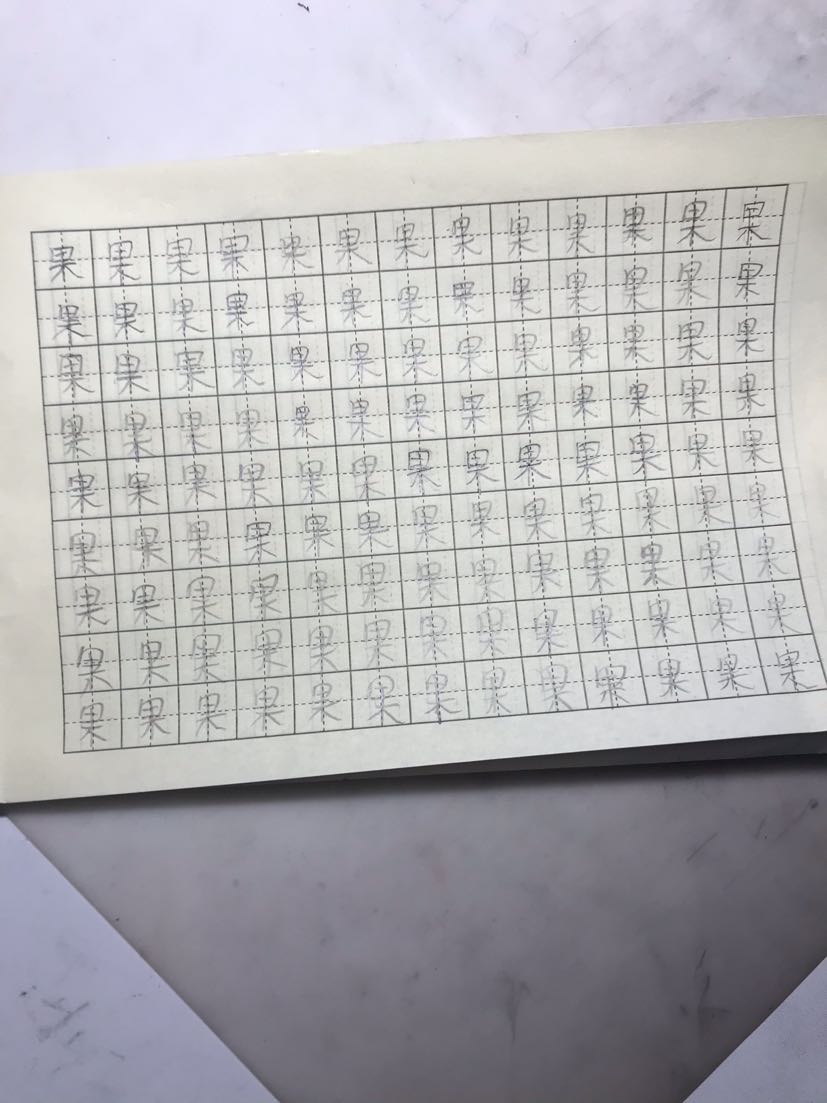 果果果果果果果果果果果果果
果果果果果果果果果果果果果
果果果果果果果果果果果果果
果果果果果果果果果果果果果
果果果果果果果果果果果果果
果果果果果果果果果果果果果
果果果果果果果果果果果果果
果果果果果果果果果果果果果
果果果果果果果果果果果果果